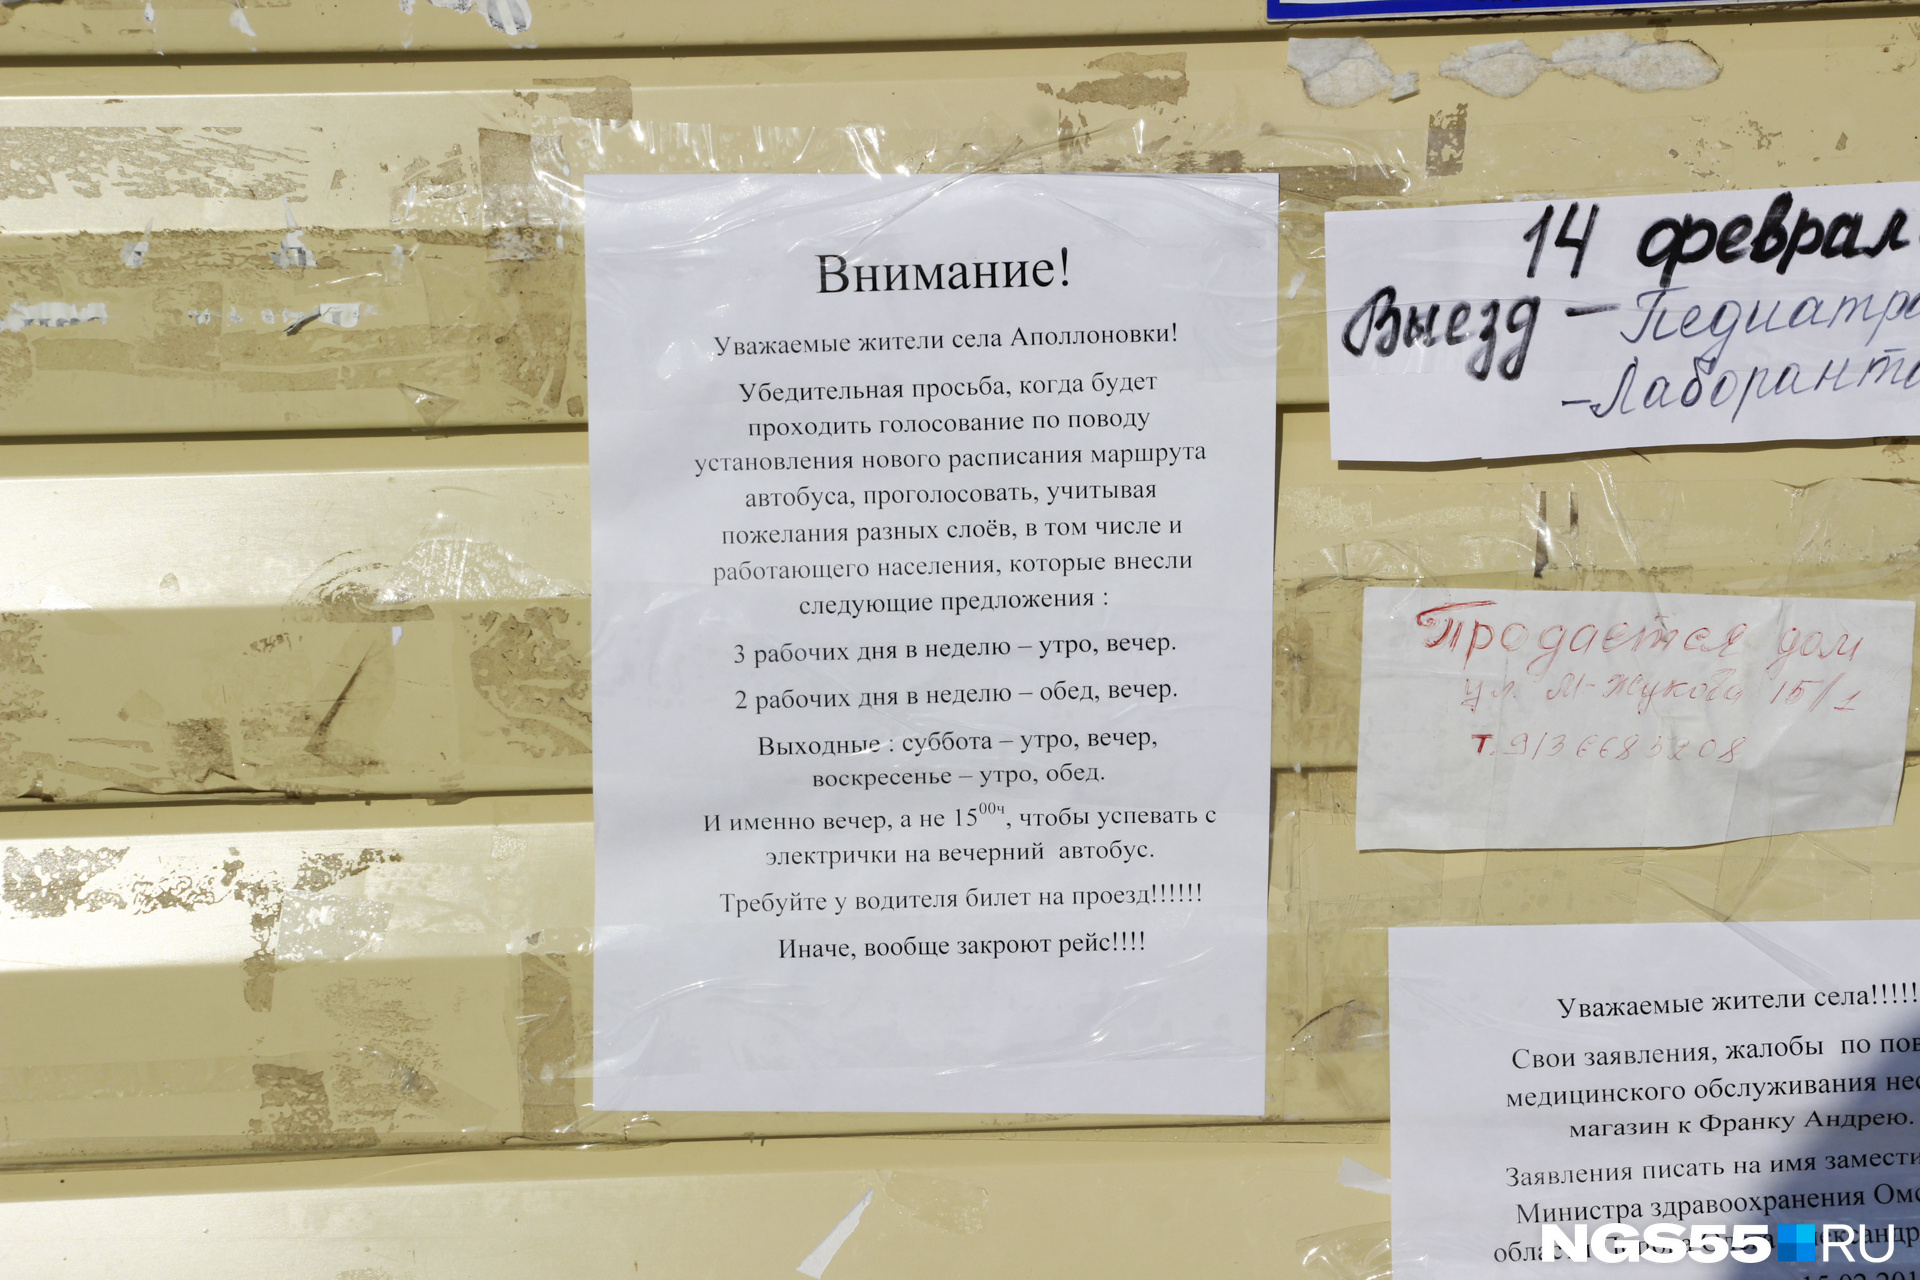 Внимание!
Уважаемые жители села Аполлоновки!
Убедительная просьба, когда будет
проходить голосование по поводу
установления нового расписания маршрута
автобуса, проголосовать, учитывая
пожелания разных слоёв, в том числе и
работающего населения, которые внесли
следующие предложения :
3 рабочих дня в неделю – утро, вечер.
2 рабочих дня в неделю – обед, вечер.
Выходные : суббота – утро, вечер,
воскресенье – утро, обед.
И именно вечер, а не 15 00ч, чтобы успевать с
электрички на вечерний автобус.
Требуйте у водителя билет на проезд!!!!!!
Иначе, вообще закроют рейс!!!!
14 феврал
Выезд – Педиатра
– Лаборанта
Продается дом
ул. М-Жукова 15/1
т.
Уважаемые жители села!!!!!
Свои заявления, жалобы по пов
медицинского обслуживания нес
магазин к Франку Андрею.
Заявления писать на имя замести
Министра здравоохранения Омс
NGS55.RU